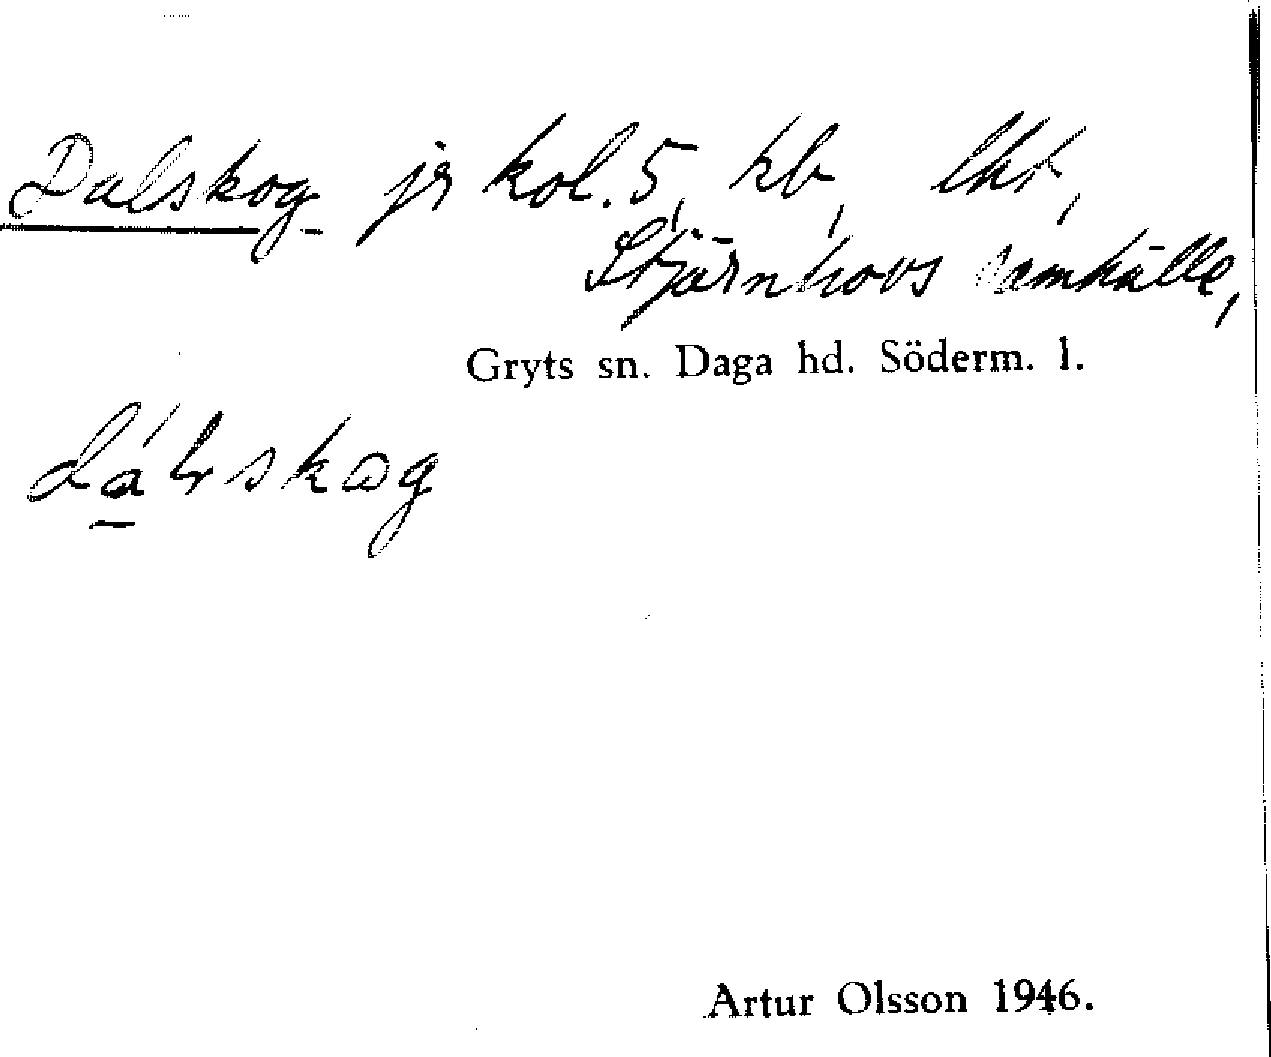 Dalskog jr kol. 5, kb, lht,
Stjärnhovs samhälle,
Gryts sn. Daga hd. Söderm. l.
Artur Olsson 1946.